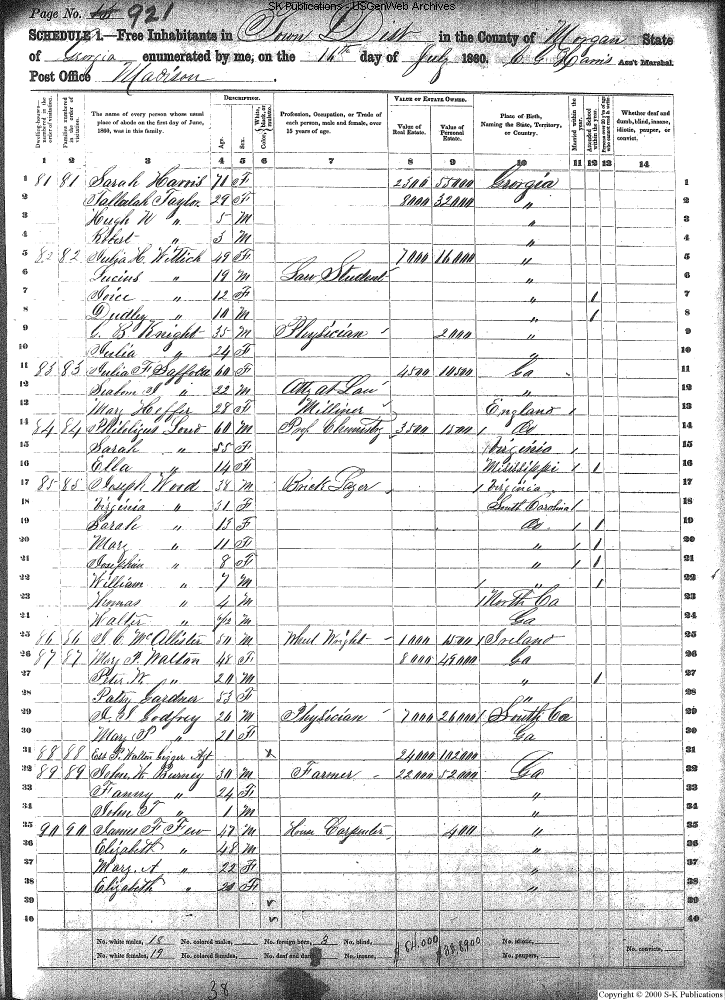 SK Publications - USGenWeb Archives
Page No. 921
SCHEDULE 1.—Free Inhabitants in Town Dist in the County of Morgan State
of Georgia enumerated by me, on the 16th day of July 1860. C C Harris Ass't Marshal.
Post Office Madison.
DESCRIPTION. VALUE OF ESTATE OWNED.
Dwelling-houses—numbered in the order of visitation. Families numbered in the order of visitation. The name of every person whose usual place of abode on the first day of June, 1860, was in this family. Age. Sex. Color, White, black, or mulatto. Profession, Occupation, or Trade of each person, male and female, over 15 years of age. Value of Real Estate. Value of Personal Estate. Place of Birth, Naming the State, Territory, or Country. Married within the year. Attended School within the year. Whether deaf and dumb, blind, insane, idiotic, pauper, or convict.
1 2 3 4 5 6 7 8 9 10 11 12 13 14
1 81 81 Sarah Harris 71 F 55000 Georgia 1
2 Tallulah Taylor 29 F 8000 32000 " 2
3 Hugh W " 5 M " 3
4 Robert " 3 M " 4
5 82 82 Julia H. Wittich 49 F 7000 16000 " 5
6 Lucius " 19 M Law Student " 6
7 " 12 F " 1 7
8 Dudley " 10 M " 1 8
9 C B Knight 35 M Physician 2000 " 9
10 Julia " 24 F " 10
11 83 83 Julia F Saffold 60 F 4500 10500 Ga 11
12 " 22 M Atty at Law " 12
13 Mary Heffer 28 F Milliner England 13
14 84 84 60 M Prof Chemistry 3500 1500 Do 14
15 Sarah " 55 F Virginia 15
16 Ella " 14 F Mississippi 16
17 85 85 Joseph Wood 38 M Brick Layer Virginia 17
18 Virginia " 31 F South Carolina 18
19 Sarah " 13 F Do 19
20 Mary " 11 F " 20
21 Josephine " 8 F " 21
22 William " 7 M " 22
23 Thomas " 4 M North Ca 23
24 Walter " M Ga 24
25 86 86 McAllister 50 M Wheel Wright 1000 1500 Ireland 25
26 87 87 Mary Walton 48 F 8000 49000 Ga 26
27 Peter W " 20 M " 1 27
28 Patsy Gardner 53 F " 28
29 Godfrey 26 M Physician 7000 26000 South Ca 29
30 Mary P " 21 F Ga 30
31 88 88 Est P. Walton Agt 24000 102000 31
32 89 89 John W Burney 30 M Farmer 22000 52000 Ga 32
33 Fanny " 24 F " 33
34 John T " 1 M " 34
35 90 90 James F Few 47 M House Carpenter 400 " 35
36 Elizabeth " 48 " 36
37 Mary A " 22 F " 37
38 Elizabeth " 20 F " 38
39 39
40 40
No. white males, 18 No. colored males, No. foreign born, 3 No. blind, No. idiotic,
No. white females, 19 No. colored females, No. deaf and dumb, No. insane, No. paupers, No. convicts,
38
Copyright © 2000 S-K Publications